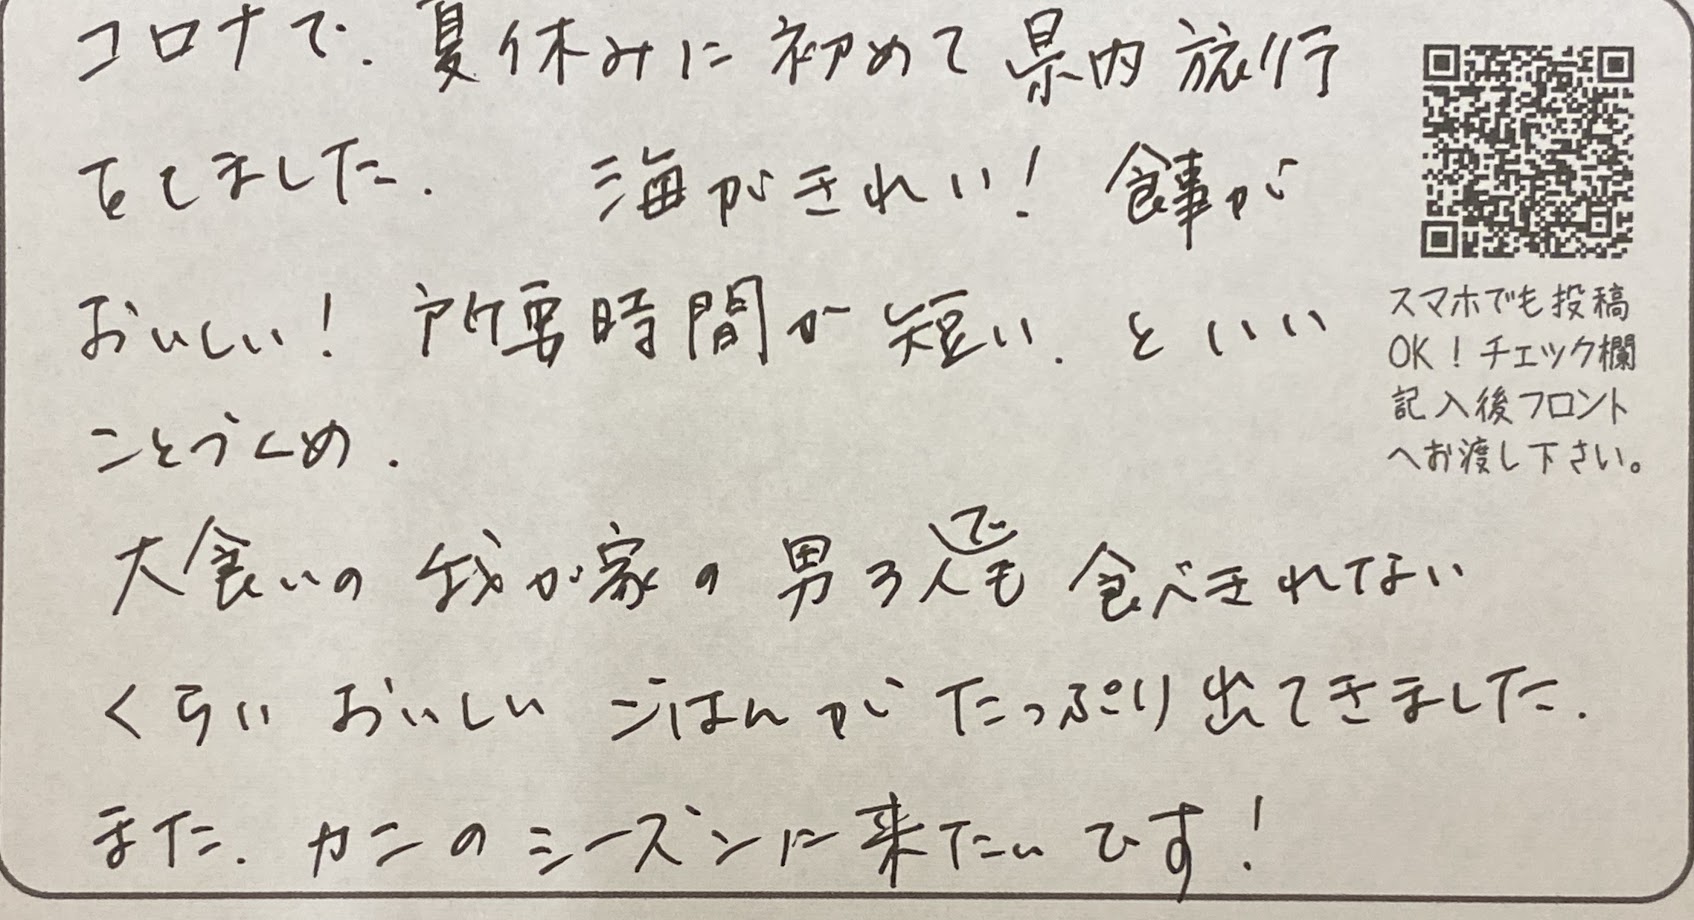 コロナで.夏休みに初めて県内旅行
をしました. 海がきれい!食事が
おいしい!所要時間が短い.といい
ことづくめ.
大食いの我が家の男3人でも食べきれない
くらいおいしいごはんがたっぷり出てきました.
また.カニのシーズンに来たいです!
スマホでも投稿
OK!チェック欄
記入後フロント
へお渡し下さい。